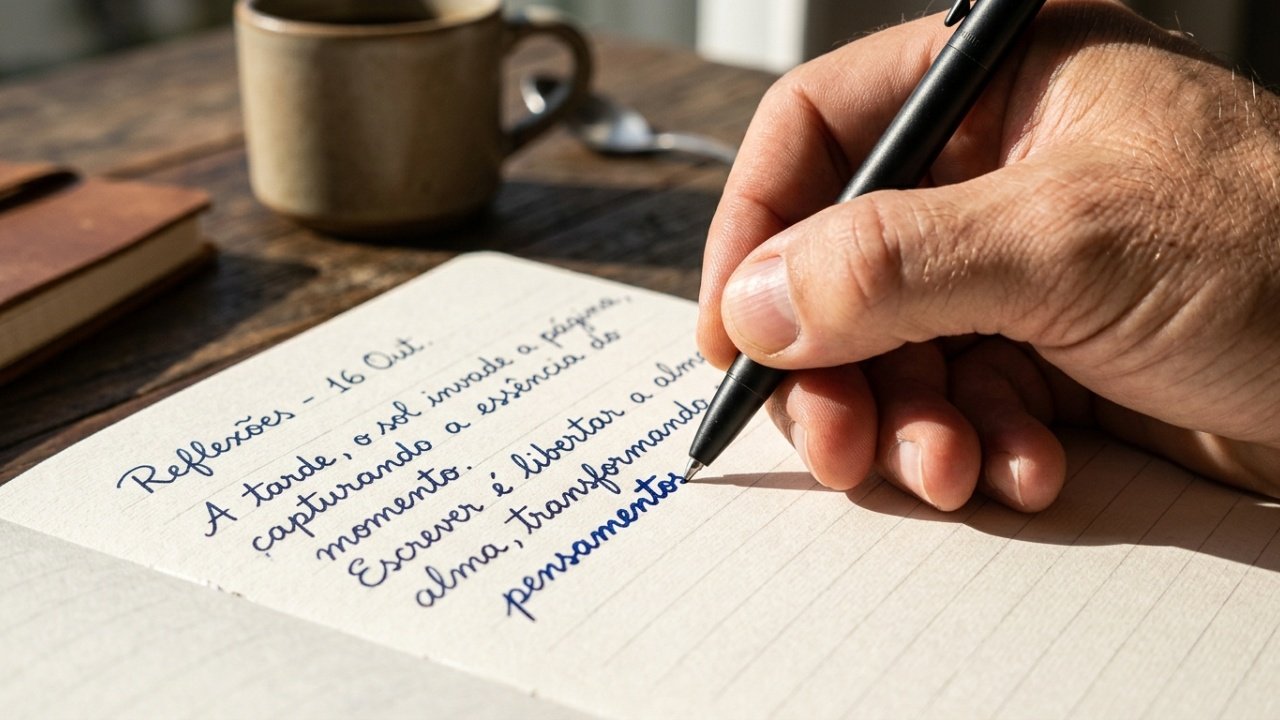 Reflexões - 16 Out.
A tarde, o sol invade a página,
capturando a essência do
momento.
Escrever é libertar a alma
alma, transformando
pensamentos